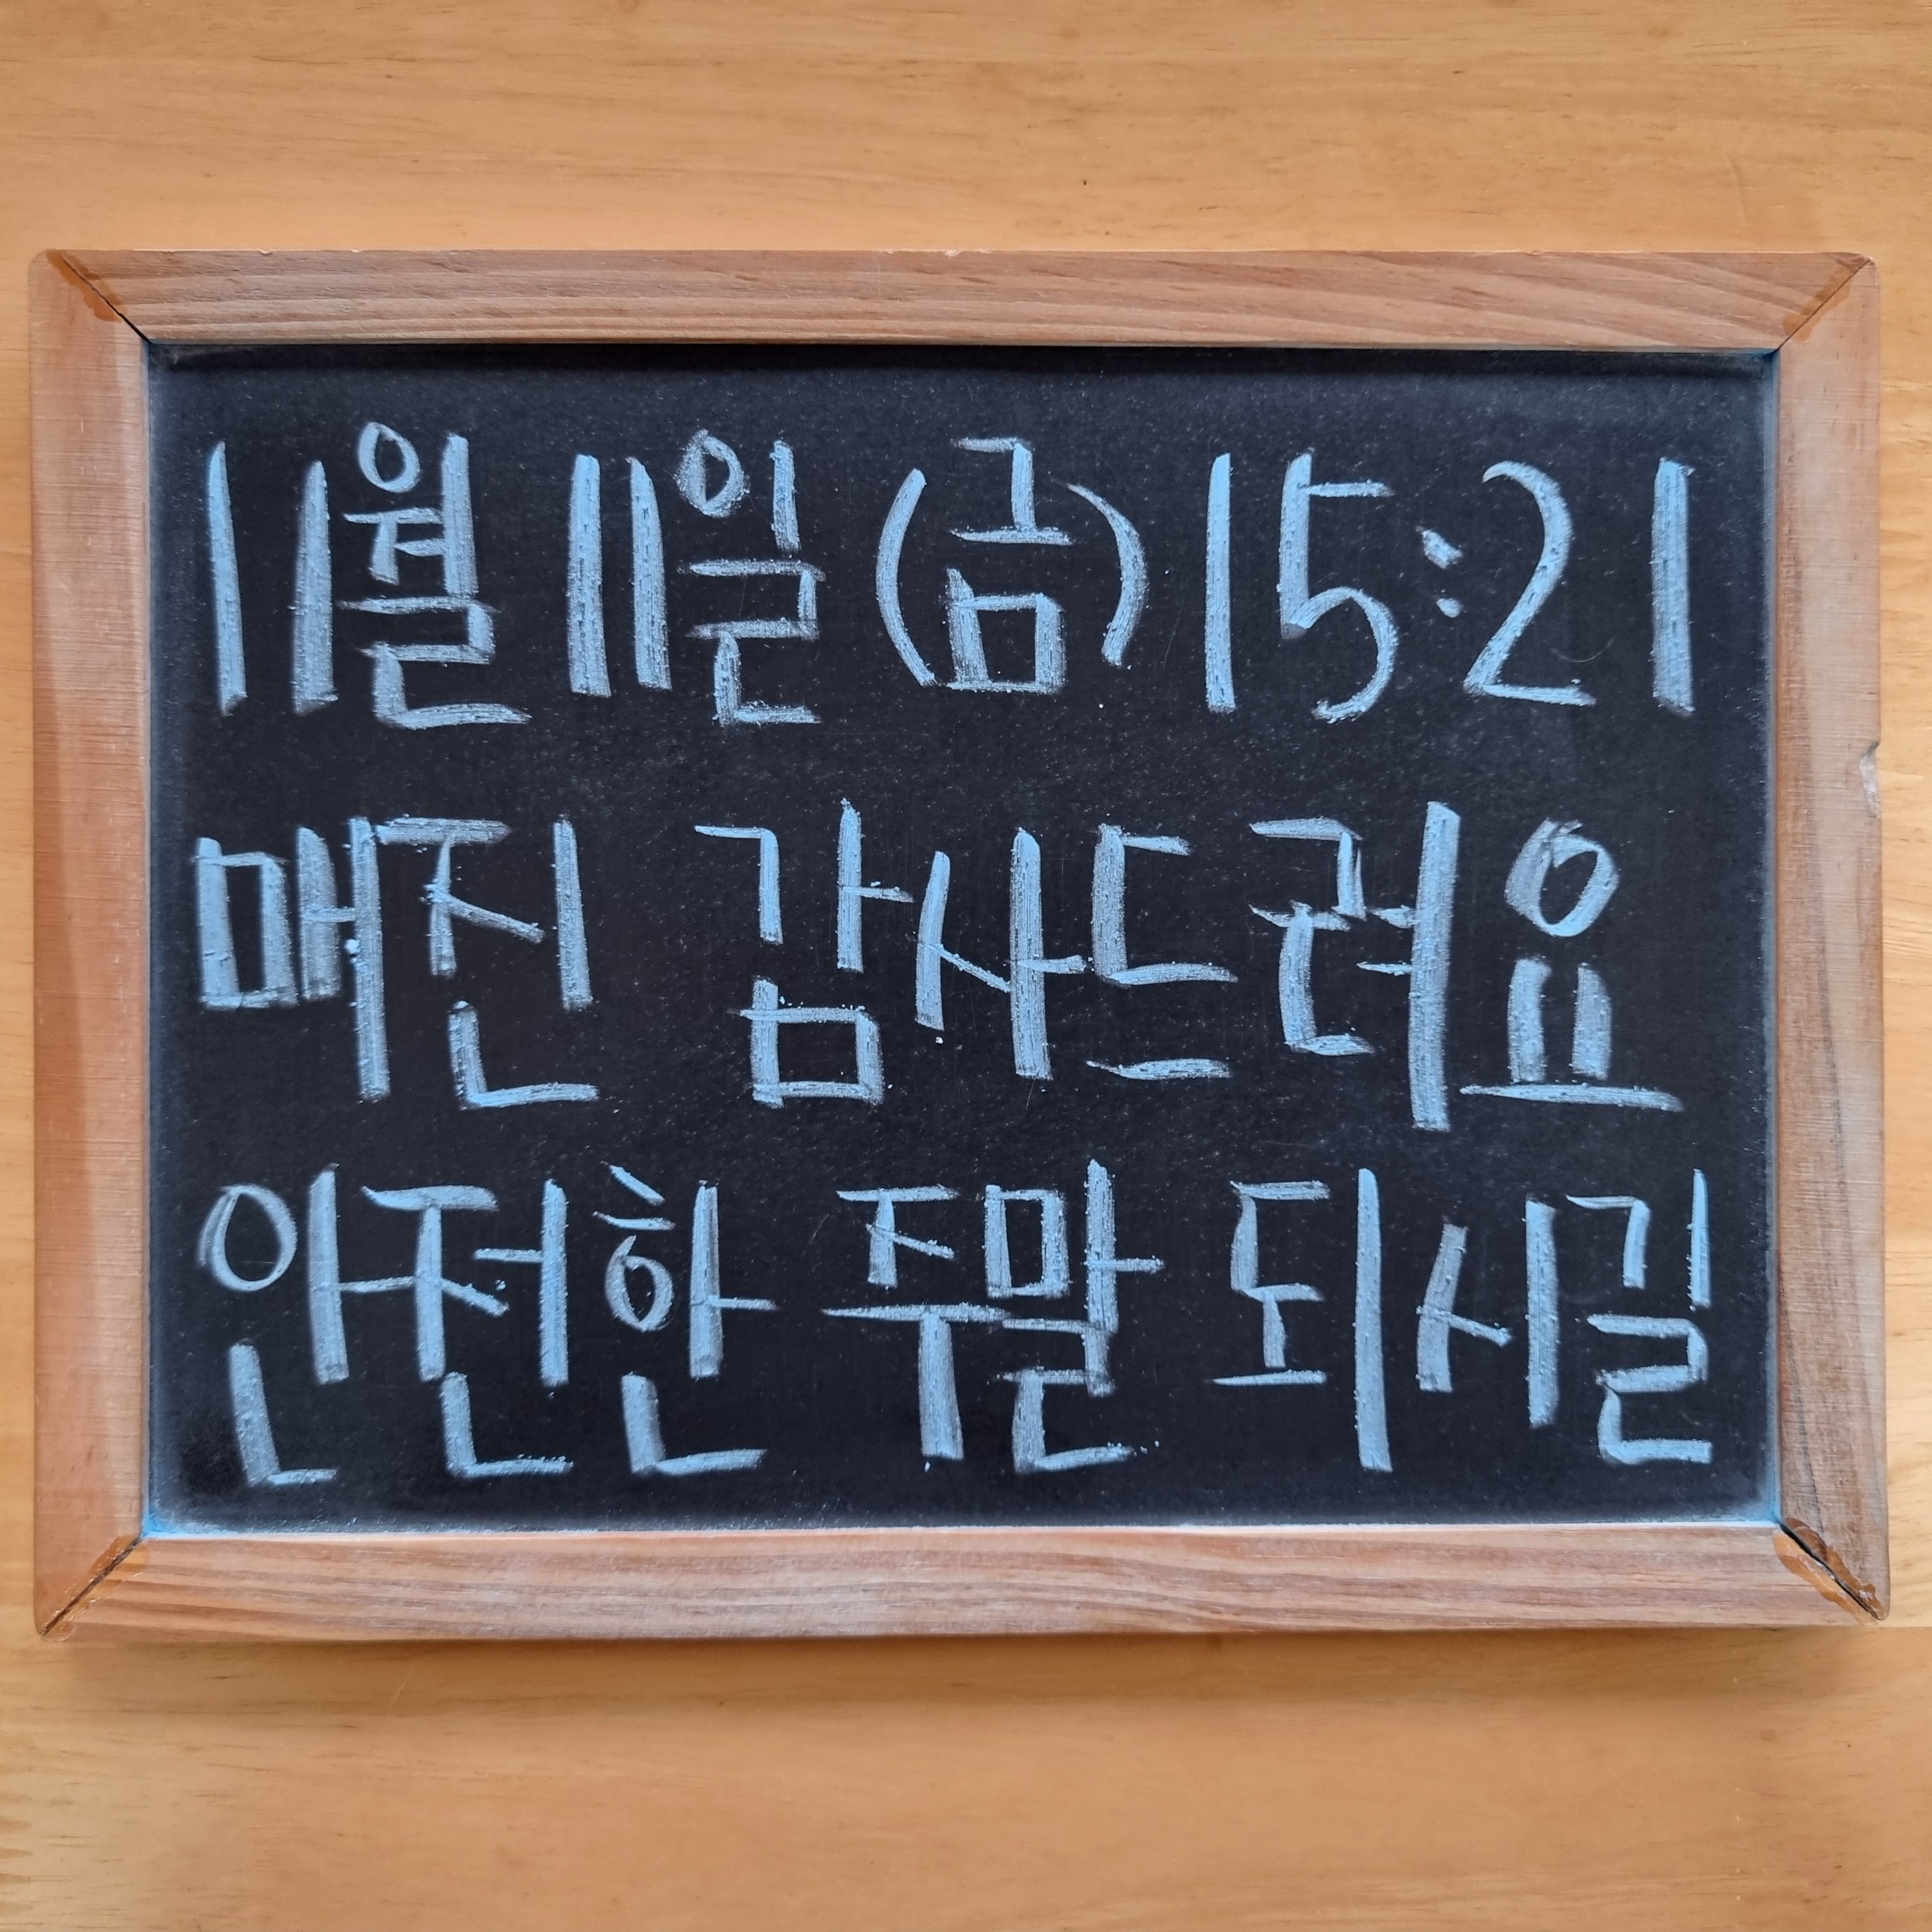 11월 11일 (금) 15:21
매진 감사드려요
안전한 주말 되시길